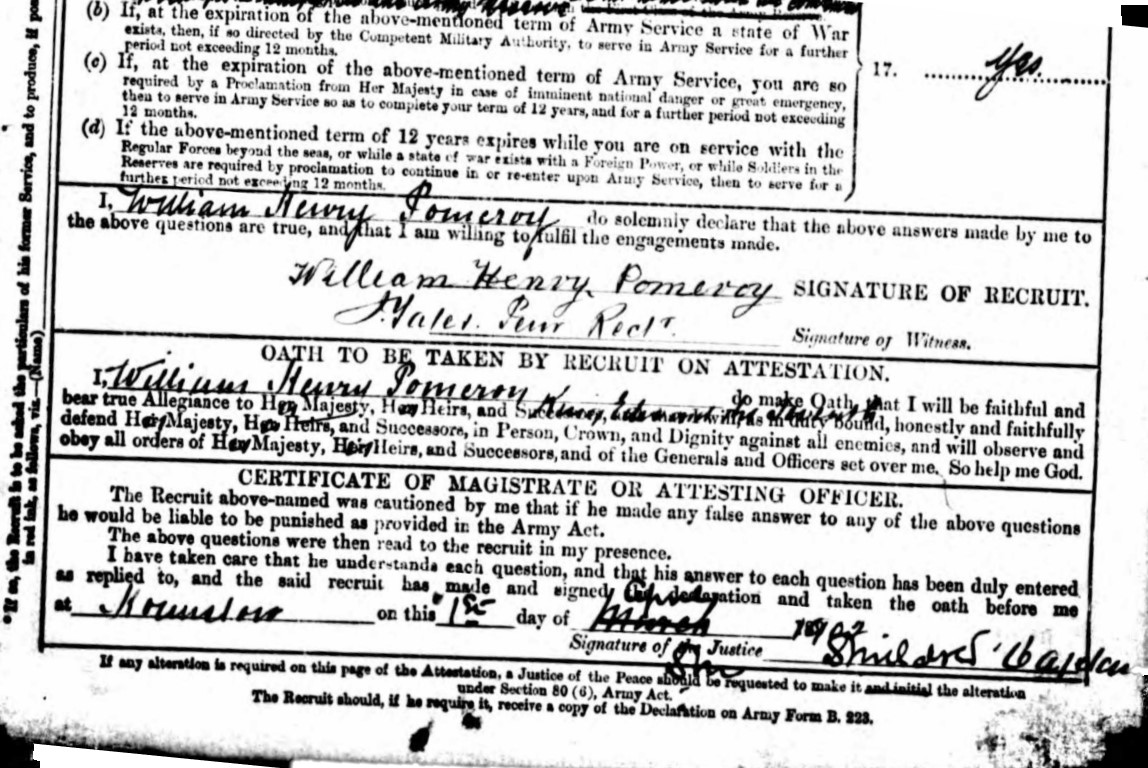 (b) If, at the expiration of the above-mentioned term of Army Service a state of War
exists, then, if so directed by the Competent Military Authority, to serve in Army Service for a further
period not exceeding 12 months.
(c) If, at the expiration of the above-mentioned term of Army Service, you are so
required by a Proclamation from Her Majesty in case of imminent national danger or great emergency,
then to serve in Army Service so as to complete your term of 12 years, and for a further period not exceeding
12 months.
17. Yes
(d) If the above-mentioned term of 12 years expires while you are on service with the
Regular Forces beyond the seas, or while a state of war exists with a Foreign Power, or while Soldiers in the
Reserves are required by proclamation to continue in or re-enter upon Army Service, then to serve for a
further period not exceeding 12 months.
I, William Henry Pomeroy do solemnly declare that the above answers made by me to
the above questions are true, and that I am willing to fulfil the engagements made.
William Henry Pomeroy SIGNATURE OF RECRUIT.
Signature of Witness.
OATH TO BE TAKEN BY RECRUIT ON ATTESTATION.
I, William Henry Pomeroy do make Oath, that I will be faithful and
bear true Allegiance to Her Majesty, Her Heirs, and Successors, King Edward the Seventh will, as in duty bound, honestly and faithfully
defend Her Majesty, Her Heirs, and Successors, in Person, Crown, and Dignity against all enemies, and will observe and
obey all orders of Her Majesty, Her Heirs, and Successors, and of the Generals and Officers set over me. So help me God.
CERTIFICATE OF MAGISTRATE OR ATTESTING OFFICER.
The Recruit above-named was cautioned by me that if he made any false answer to any of the above questions
he would be liable to be punished as provided in the Army Act.
The above questions were then read to the recruit in my presence.
I have taken care that he understands each question, and that his answer to each question has been duly entered
as replied to, and the said recruit has made and signed the declaration and taken the oath before me
at Hounslow on this 1st day of March April 1902
Signature of the Justice
If any alteration is required on this page of the Attestation, a Justice of the Peace should be requested to make it and initial the alteration
under Section 80 (6), Army Act.
The Recruit should, if he require it, receive a copy of the Declaration on Army Form B. 223.
*If so, the Recruit is to be asked the particulars of his former Service, and to produce, if
in red ink, as follows, viz.—(Name)